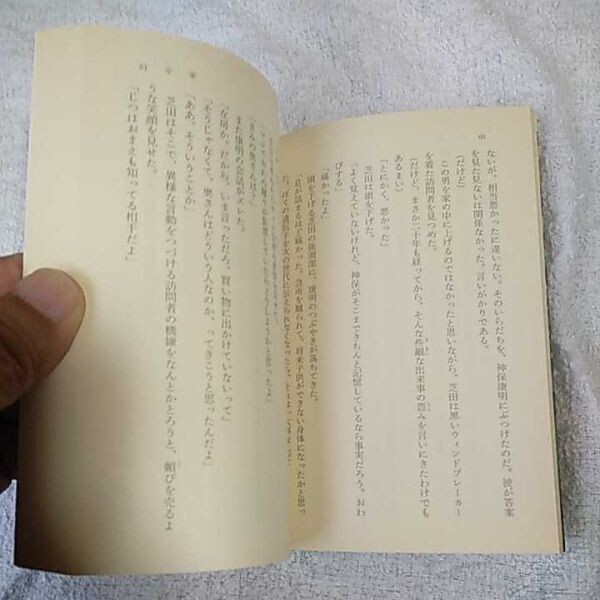 60
ないが、相当悪かったに違いない。そのいらだちを、神保康明にぶつけたのだ。彼が答案
を見た見ないは関係なかった。言いがかりである。
(だけど)
この男を家の中に上げるのではなかったと思いながら、芝田は黒いウィンドブレーカー
を着た訪問者を見つめた。
(だけど、まさか二十年も経ってから、そんな些細な出来事の怨みを言いにきたわけでも
あるまい)
「とにかく、悪かった」
芝田は頭を下げた。
「よく覚えていないけれど、神保がそこまできちんと記憶しているなら事実だろう。おわ
びする」
「痛かったよ」
頭を下げる芝田の後頭部に、康明のつぶやきが落ちてきた。
「息が詰まるほど痛かった。急所を蹴られて、将来子供ができない身体になったかと思っ
た。ぼくの遺伝子を次の世代に伝えられなくなったら、
61 卒業
「きみの奥さんは？」
また康明の会話がズレた。
「女房か。だから、いま言っただろ。買い物に出かけていないって」
「そうじゃなくて、奥さんはどういう人なのか、ってきこうと思ったんだよ」
「ああ、そういうことか」
芝田はそこで、異様な言動をつづける訪問者の機嫌をなんとかとろうと、媚びを売るよ
うな笑顔を見せた。
「じつはおまえも知ってる相手だよ」